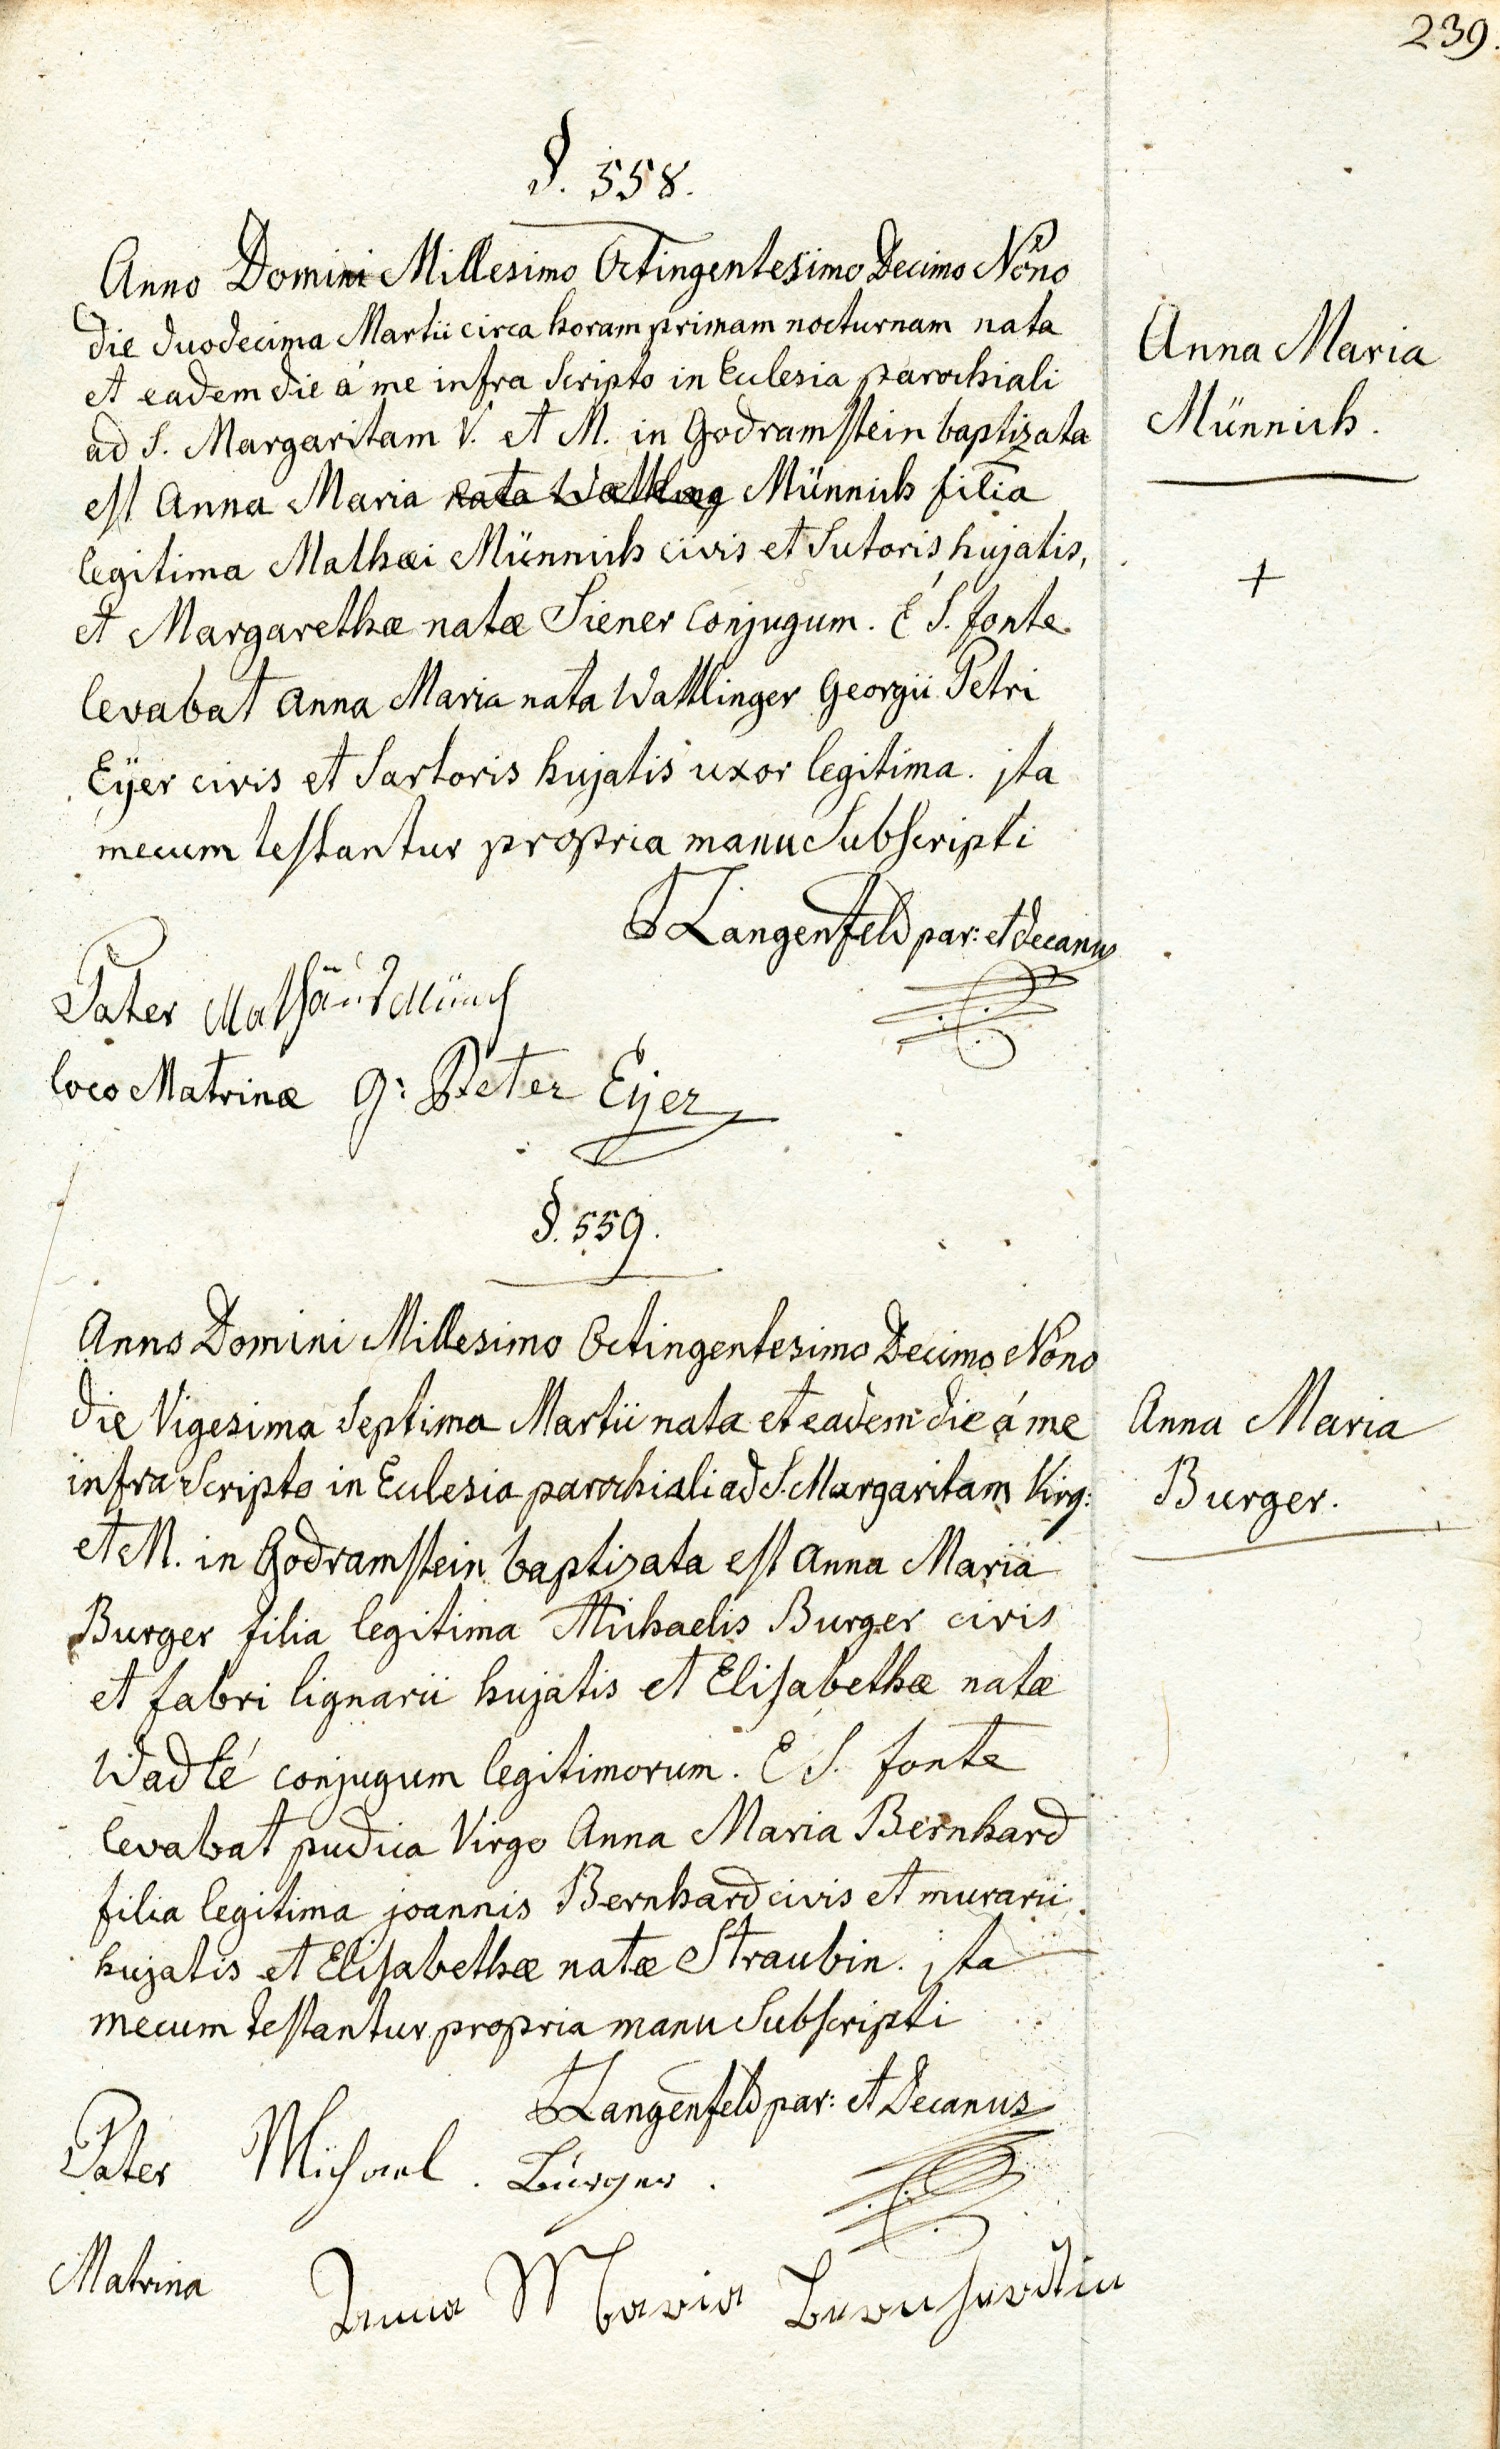 239.
§. 558.
Anno Domini Millesimo Octingentesimo Decimo Nono
die duodecima Martii circa horam primam nocturnam nata
et eadem die á me infra Scripto in Ecclesia parochiali
ad S. Margaritam V. et M. in Godramstein baptizata
est Anna Maria nata Wattling Münnich filia
legitima Mathæi Münnich civis et Sutoris hujatis,
et Margarethæ natæ Siener Conjugum. É S. fonte
levabat Anna Maria nata Wattlinger Georgii Petri
Eÿer civis et Sartoris hujatis uxor legitima. jta
mecum testantur propria manu Subscripti
Anna Maria
Münnich.
+
Langenfeld par: et decanus
Pater Mathäus Münch
loco Matrinæ g: Peter Eÿer
§. 559.
Anno Domini Millesimo Octingentesimo Decimo Nono
die Vigesima Septima Martii nata et eadem die á me
infra Scripto in Ecclesia parochiali ad S. Margaritam Virg:
et M. in Godramstein baptizata est Anna Maria
Burger filia legitima Michaelis Burger civis
et fabri lignarii hujatis et Elisabethæ natæ
Wadlé conjugum legitimorum. É S. fonte
levabat pudica Virgo Anna Maria Bernhard
filia legitima joannis Bernhard civis et murarii
hujatis et Elisabethæ natæ Straubin. jta
mecum testantur propria manu Subscripti
Anna Maria
Burger.
Langenfeld par: et Decanus
Pater Michael. Bürger.
Matrina Anna Maria Bernhardtin